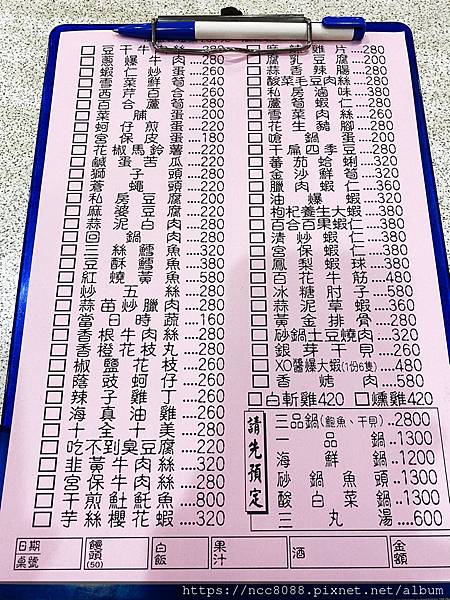 豆干牛肉絲....280
蔥爆牛肉....280
蝦仁炒蛋....260
雪菜鮮筍....240
西芹百合....260
百合蘆筍....280
菜脯蛋....200
蚵仔煎蛋....220
宮保皮蛋....180
花椒馬鈴薯....220
鹹蛋苦瓜....220
獅子頭....280
蒼蠅頭....220
私房豆腐....220
麻婆豆腐....220
蒜泥白肉....280
回鍋肉....280
三絲鱈魚....380
豆酥鱈魚....380
紅燒黃魚....580
炒五絲....280
蒜苗炒臘肉....280
當日時蔬....160
香根牛肉絲....280
香橙花枝丸....280
椒鹽花枝....260
蔭豉蚵仔....260
辣子雞丁....260
海真油雞....260
十全十美....280
吃不到臭豆腐....220
韭黃牛肉絲....320
宮保牛肉....280
干煎䱇魠魚....800
芋絲櫻花蝦....320
雞片....280
腐乳豆腐....200
蒜香辣腸....280
酸菜毛豆肉絲....280
私房滷味....380
蘆筍蝦仁....380
雪菜肉絲....260
花生豬腳....280
嗆鍋蛋....200
干扁四季豆....280
蕃茄蛤蜊....320
金沙鮮筍....320
臘肉蝦仁....360
油爆蝦....320
枸杞養生大蝦....380
百合百果蝦仁....380
清炒蝦仁....380
宮保蝦仁....380
鳳梨蝦球....380
百花牛筋....480
冰糖肘子....580
蒜泥草蝦....360
黃金排骨....280
砂鍋土豆燒肉....320
銀芽干貝....260
XO醬爆大蝦(1份6隻)....480
香烤肉....580
白斬雞420 燻雞420
請先預定
三品鍋(鮑魚、干貝)..2800
一品鍋..1300
海鮮鍋..1200
砂鍋魚頭..1300
酸白菜鍋..1300
三丸湯....600
日期 桌號
饅頭(50)
白飯
果汁
酒
金額
https://ncc8088.pixnet.net/album